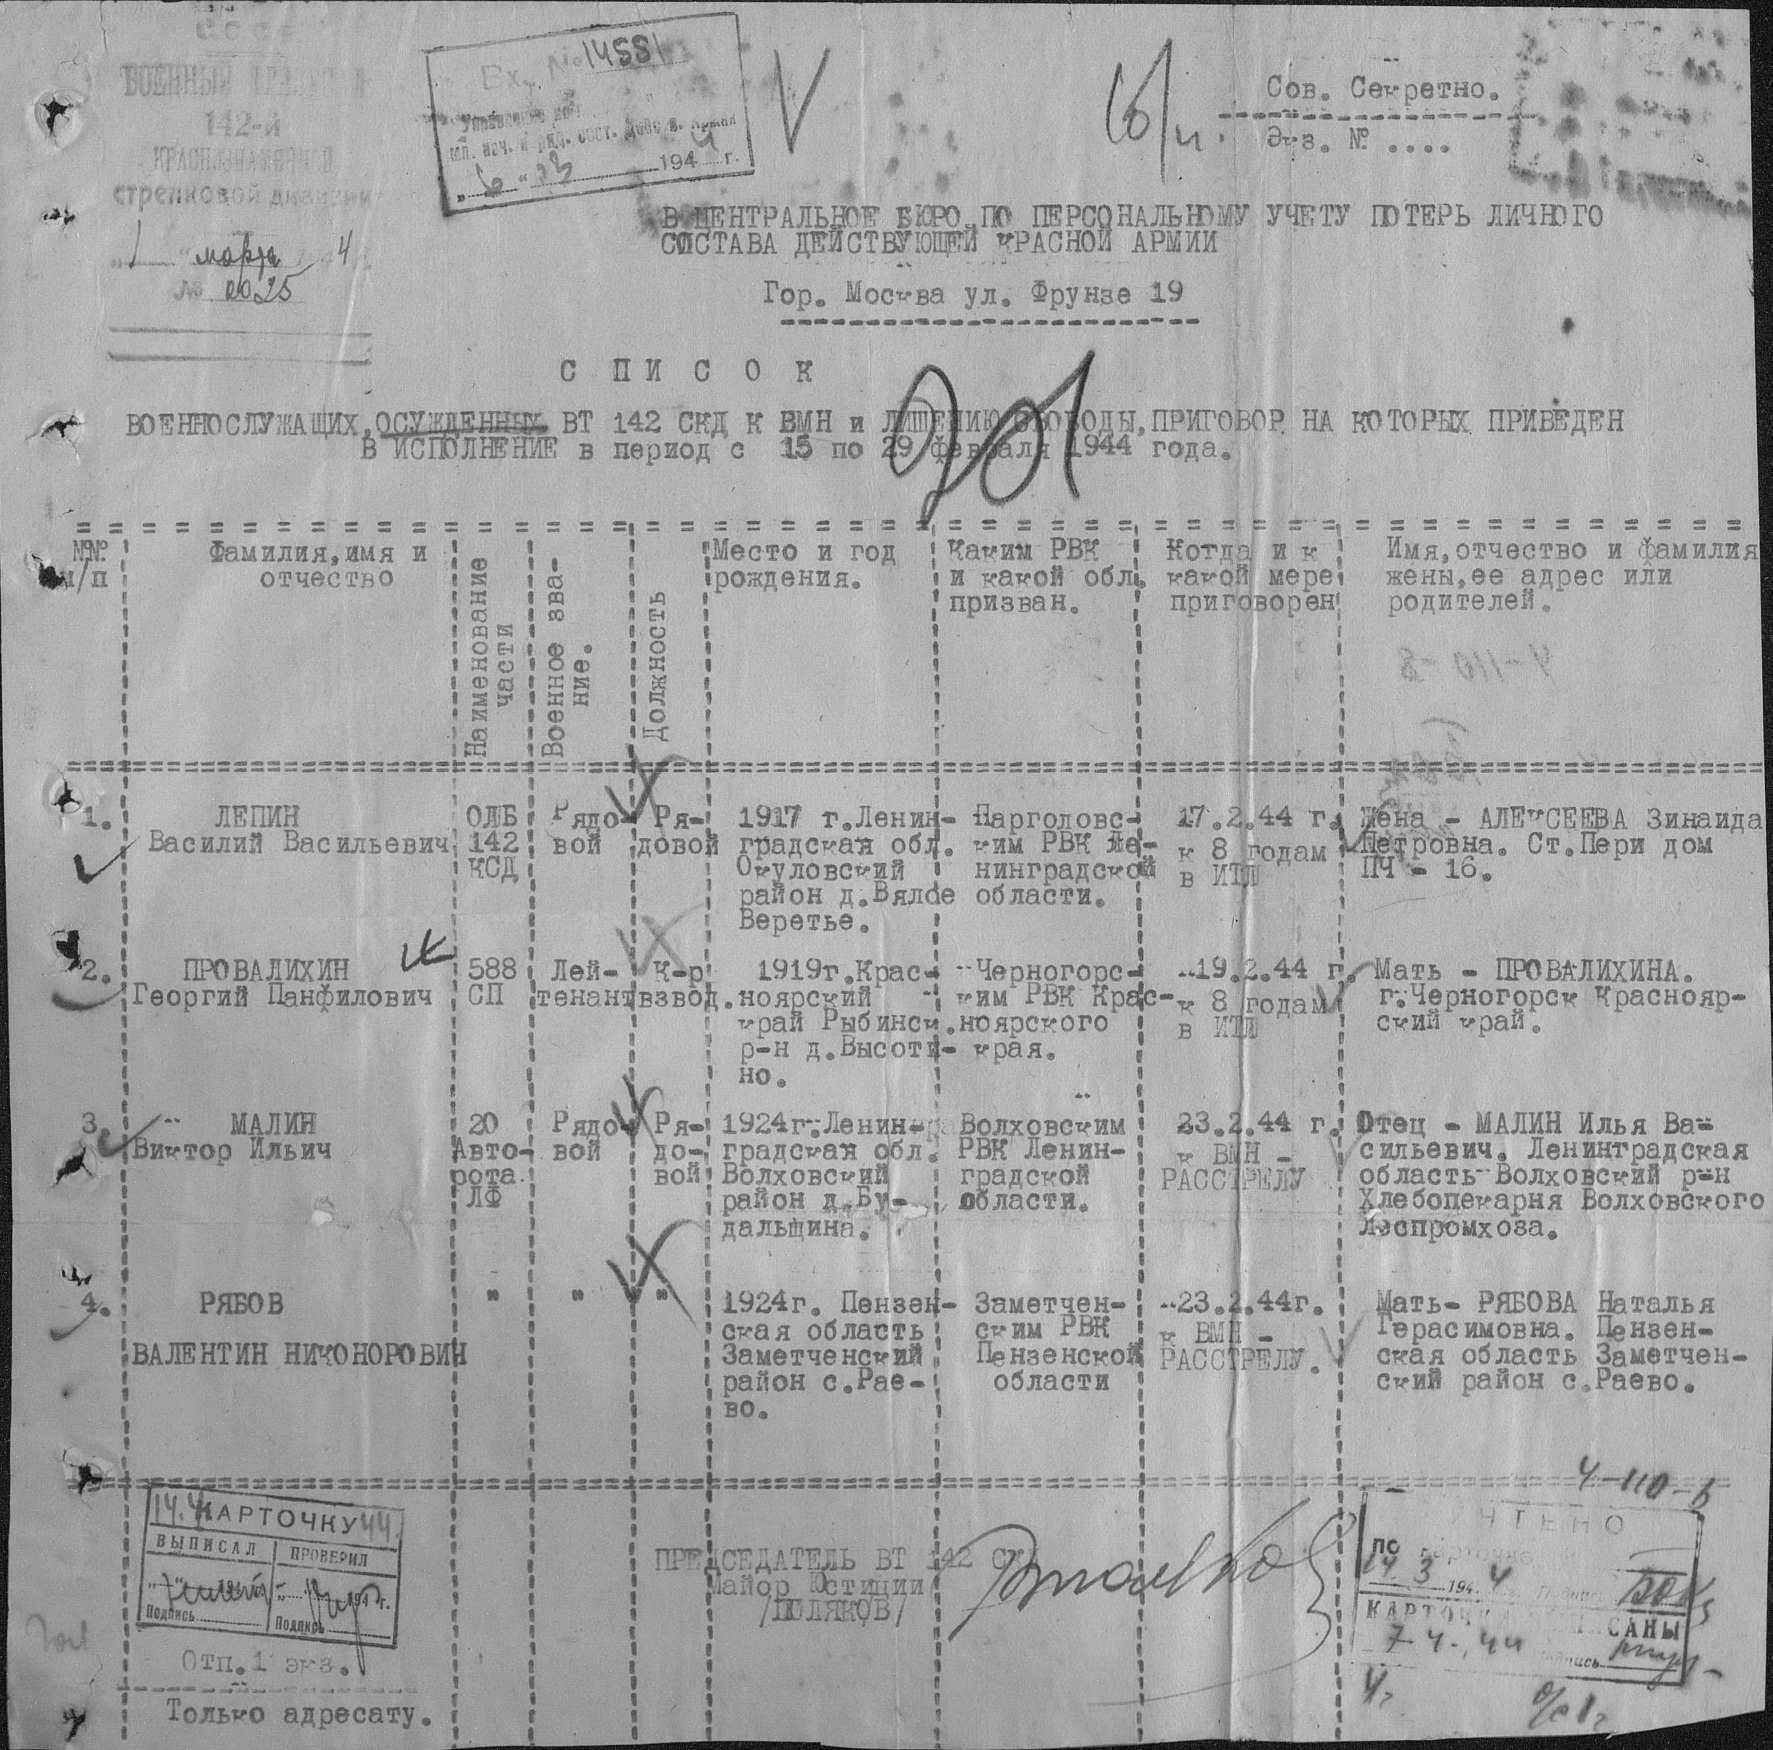 СССР
ВОЕННЫЙ
142-й
КРАСНОЗНАМЕННОЙ
стрелковой дивизии
"1" марта 4
№ 0025
Вх. № 14551
Управление
194 4 г.
Сов. Секретно.
Экз. № ....
В ЦЕНТРАЛЬНОЕ БЮРО ПО ПЕРСОНАЛЬНОМУ УЧЕТУ ПОТЕРЬ ЛИЧНОГО
СОСТАВА ДЕЙСТВУЮЩЕЙ КРАСНОЙ АРМИИ
Гор. Москва ул. Фрунзе 19
С П И С О К
ВОЕННОСЛУЖАЩИХ, ОСУЖДЕННЫХ ВТ 142 СКД К ВМН и ЛИШЕНИЮ СВОБОДЫ, ПРИГОВОР НА КОТОРЫХ ПРИВЕДЕН
В ИСПОЛНЕНИЕ в период с 15 по 29 февраля 1944 года.
№№
п/п
Фамилия, имя и
отчество
Наименование
части
Военное зва-
ние.
Должность
Место и год
рождения.
Каким РВК
и какой обл.
призван.
Когда и к
какой мере
приговорен
Имя, отчество и фамилия
жены, ее адрес или
родителей.
1.
ЛЕПИН
Василий Васильевич
ОЛБ
142
КСД
Рядо-
вой
Ря-
довой
1917 г. Ленин-
градская обл.
Окуловский
район д. Вялое
Веретье.
Парголовс-
ким РВК Ле-
нинградской
области.
17.2.44 г.
к 8 годам
в ИТЛ
Жена - АЛЕКСЕЕВА Зинаида
Петровна. Ст. Пери дом
ПЧ - 16.
2.
ПРОВАЛИХИН
Георгий Панфилович
588
СП
Лей-
тенант
К-р
взвод.
1919г. Крас-
ноярский
край Рыбинск.
р-н д. Высоти-
но.
Черногорс-
ким РВК Крас-
ноярского
края.
19.2.44 г.
к 8 годам
в ИТЛ
Мать - ПРОВАЛИХИНА.
г. Черногорск Краснояр-
ский край.
3.
МАЛИН
Виктор Ильич
20
Авто-
рота
ЛФ
Рядо-
вой
Ря-
до-
вой
1924г. Ленин-
градская обл.
Волховский
район д. Бу-
дальщина.
Волховским
РВК Ленин-
градской
области.
23.2.44 г.
к ВМН -
РАССТРЕЛУ
Отец - МАЛИН Илья Ва-
сильевич. Ленинградская
область Волховский р-н
Хлебопекарня Волховского
Леспромхоза.
4.
РЯБОВ
ВАЛЕНТИН НИКОНОРОВИЧ
"
"
"
1924г. Пензен-
ская область
Заметченский
район с. Рае-
во.
Заметчен-
ским РВК
Пензенской
области
23.2.44г.
к ВМН -
РАССТРЕЛУ.
Мать- РЯБОВА Наталья
Герасимовна. Пензен-
ская область Заметчен-
ский район с. Раево.
4-110-б
КАРТОЧКУ
ВЫПИСАЛ
ПРОВЕРИЛ
Подпись
Подпись
ПРЕДСЕДАТЕЛЬ ВТ 142 СКД
Майор Юстиции
/ПОЛЯКОВ/
УЧТЕНО
14 3 194 4
КАРТОЧКИ
7-4-44
Отп. 1 экз.
Только адресату.